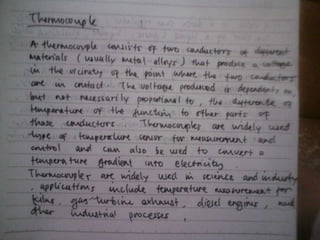 Thermocouple
A thermocouple consists of two conductors of different
materials (usually metal alloys) that produce a voltage
in the vicinity of the point where the two conductors
are in contact. The voltage produced is dependent on,
but not necessarily proportional to, the difference of
temperature of the junction to other parts of
those conductors. Thermocouples are widely used
type of temperature sensor for measurement and
control and can also be used to convert a
temperature gradient into electricity.
Thermocouples are widely used in science and industry
, applications include temperature measurement for
kilns, gas turbine exhaust, diesel engines, and
other industrial processes.